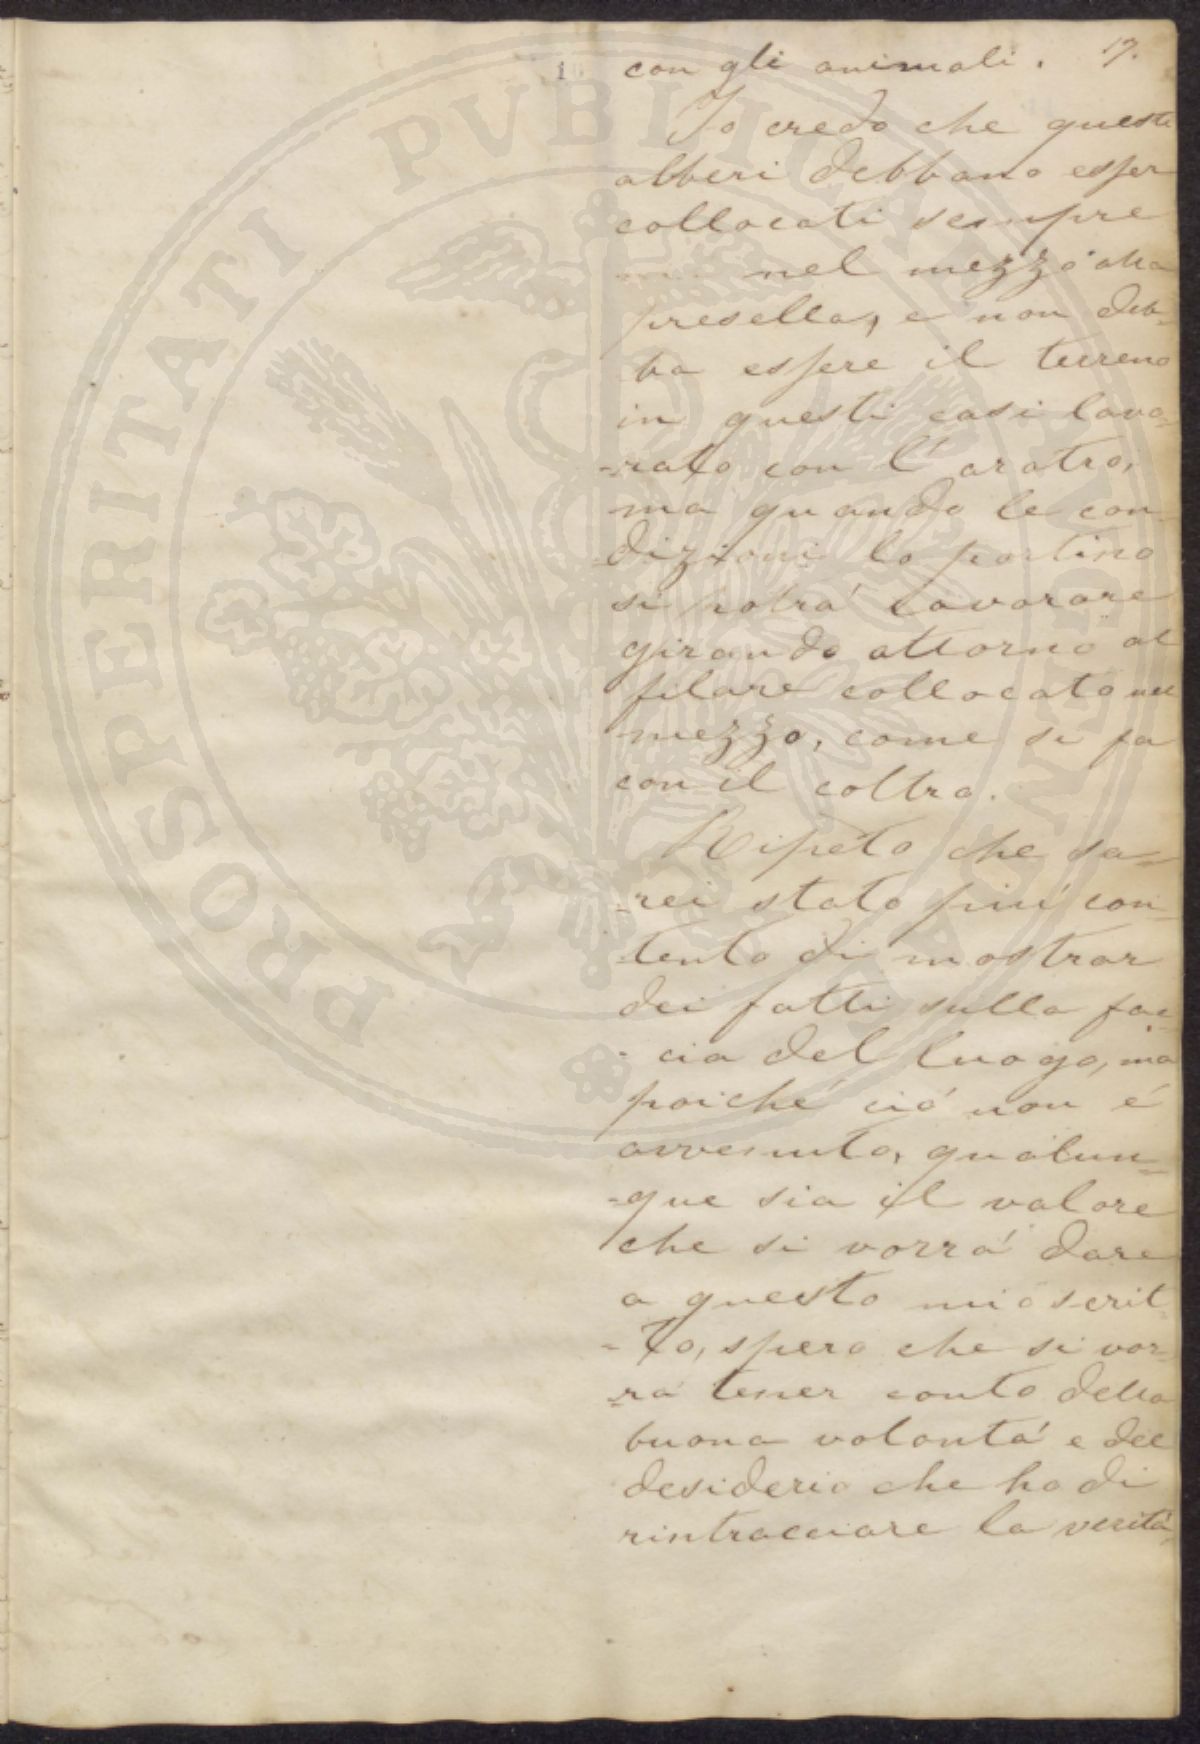 17.
con gli animali.
Io credo che questi
alberi debbano esser
collocati sempre
nel mezzo alla
presella, e non deb-
ba essere il terreno
in questi casi lavo-
-rato con l'aratro,
ma quando le con-
dizioni lo portino
si potrá lavorare
girando attorno al
filare collocato nel
mezzo, come si fa
con il coltro.
Ripeto che sa-
-rei stato piú con-
-tento di mostrar
dei fatti sulla fac-
-cia del luogo, ma
poiché ció non é
avvenuto, qualun-
-que sia il valore
che si vorrá dare
a questo mio scrit-
-to, spero che si vor-
-rá tener conto della
buona volontá e del
desiderio che ho di
rintracciare la veritá,
PROSPERITATI PVBLICAE AVGENDAE